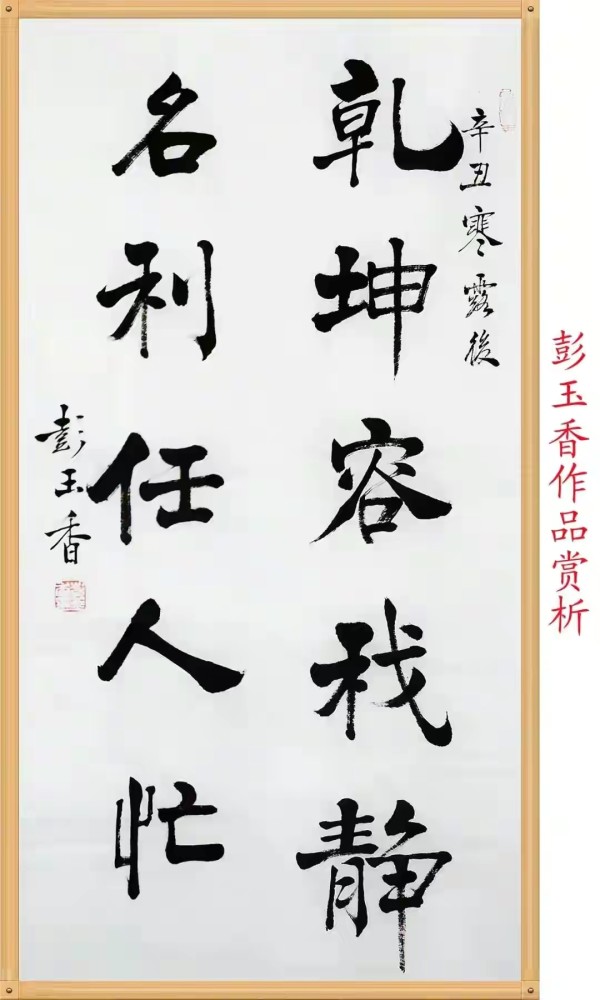 辛丑寒露後
乾坤容我静
名利任人忙
彭玉香
彭玉香作品赏析